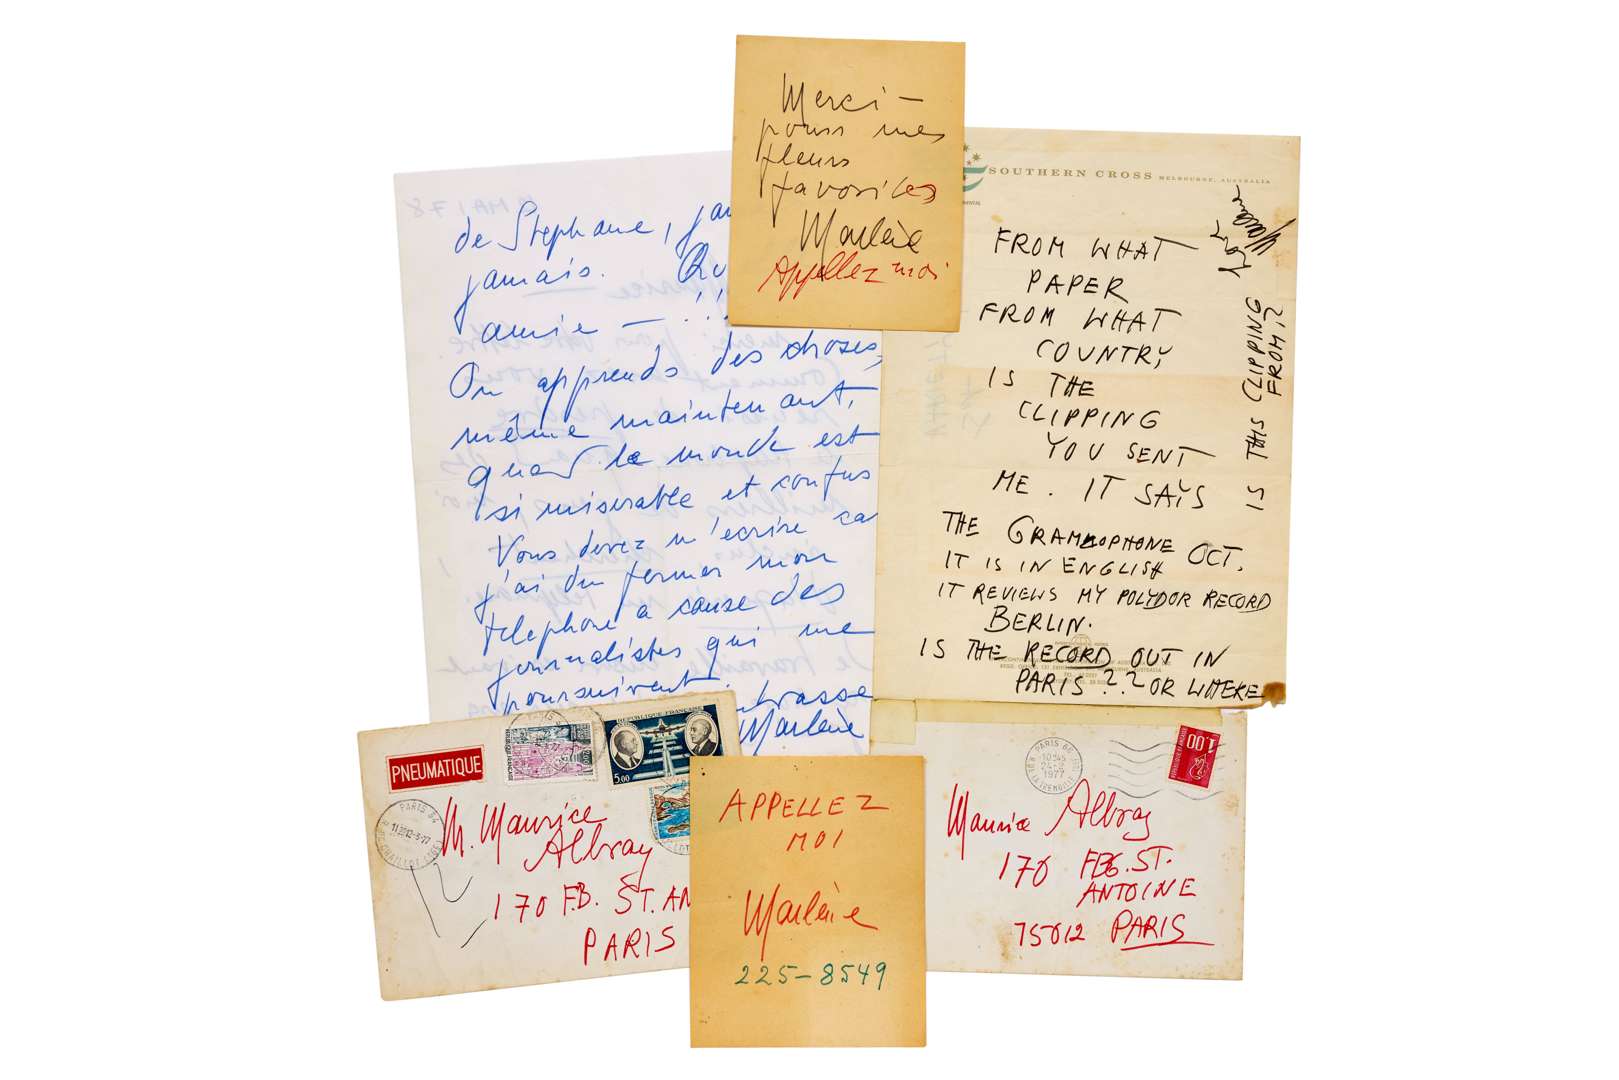 Merci —
pour mes
fleurs
favorites
Marlène
Appellez moi
MAI 78
de Stephane,
jamais. Qu
amie — !!
On apprends des choses,
même maintenant,
quand le monde est
si miserable et confus
Vous devez m'ecrire car
j'ai du fermer mon
telephone a cause des
journalistes qui me
poursuivent.
Marlène
SOUTHERN CROSS MELBOURNE, AUSTRALIA
FROM WHAT
PAPER
FROM WHAT
COUNTRY
IS THE
CLIPPING
YOU SENT
ME. IT SAYS
THE GRAMMOPHONE OCT.
IT IS IN ENGLISH
IT REVIEWS MY POLYDOR RECORD
BERLIN.
IS THE RECORD OUT IN
PARIS ?? OR WHERE
IS THIS CLIPPING
FROM?
Love
Marlène
PNEUMATIQUE
RÉPUBLIQUE FRANÇAISE
5,00
PARIS 84
M. Maurice
Albray
170 FB. ST. AN
PARIS
APPELLEZ
MOI
Marlène
225-8549
PARIS 86
10H45
25-2
1977
1,00
Maurice Albray
170 FBG. ST.
ANTOINE
75012 PARIS